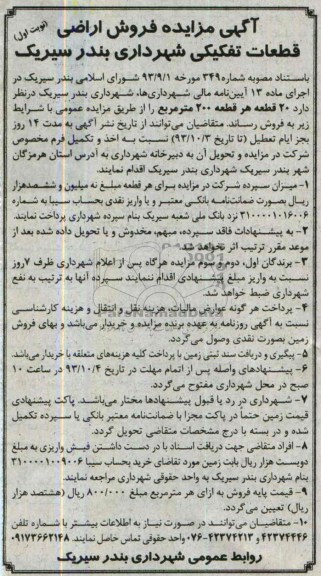 (نوبت اول)
آگهی مزایده فروش اراضی
قطعات تفکیکی شهرداری بندر سیریک
باستناد مصوبه شماره ۳۴۹ مورخه ۹۳/۹/۱ شورای اسلامی بندر سیریک در
اجرای ماده ۱۳ آیین‌نامه مالی شهرداری‌ها، شهرداری بندر سیریک درنظر
دارد ۲۰ قطعه هر قطعه ۲۰۰ مترمربع را از طریق مزایده عمومی با شرایط
زیر به فروش رساند. متقاضیان می‌توانند از تاریخ نشر آگهی به مدت ۱۴ روز
بجز ایام تعطیل (تا تاریخ ۹۳/۱۰/۳) نسبت به اخذ و تکمیل فرم مخصوص
شرکت در مزایده و تحویل آن به دبیرخانه شهرداری به آدرس استان هرمزگان
شهر بندر سیریک شهرداری بندر سیریک اقدام نمایند.
۱- میزان سپرده شرکت در مزایده برای هر قطعه مبلغ نه میلیون و ششصدهزار
ریال بصورت ضمانت‌نامه بانکی معتبر و یا واریز نقدی بحساب سیبا به شماره
۳۱۰۰۰۰۱۰۱۶۰۰۶ نزد بانک ملی شعبه سیریک بنام سپرده شهرداری پرداخت نمایند.
۲- به پیشنهادات فاقد سپرده، مبهم، مخدوش و یا تحویل داده شده بعد از
موعد مقرر ترتیب اثر نخواهد شد.
۳- برندگان اول، دوم و سوم مزایده هرگاه پس از اعلام شهرداری ظرف ۷روز
نسبت به واریز مبلغ پیشنهادی اقدام ننمایند سپرده آنها به ترتیب به نفع
شهرداری ضبط خواهد شد.
۴- پرداخت هر گونه عوارض مالیات، هزینه نقل و انتقال و هزینه کارشناسی
نسبت به آگهی روزنامه به عهده برنده مزایده و خریدار می‌باشد و بهای فروش
زمین بصورت نقدی وصول می‌گردد.
۵- پیگیری و دریافت سند ثبتی زمین با پرداخت کلیه هزینه‌های متعلقه با خریدار می‌باشد.
۶- پیشنهادهای واصله پس از اتمام مهلت در تاریخ ۹۳/۱۰/۴ در ساعت ۱۰
صبح در محل شهرداری مفتوح می‌گردد.
۷- شهرداری در رد یا قبول پیشنهادها مختار می‌باشد. پاکت پیشنهادی
قیمت زمین حتماً در پاکت مجزا با ضمانت‌نامه معتبر بانکی یا سپرده تکمیل
شده و در بسته با درج مشخصات متقاضی تحویل گردد.
۸- افراد متقاضی جهت دریافت اسناد با در دست داشتن فیش واریزی به مبلغ
دویست هزار ریال بابت زمین مورد تقاضای خرید بحساب سیبا ۳۱۰۰۰۰۱۰۰۹۰۰۶
بنام شهرداری بندر سیریک به واحد حقوقی شهرداری مراجعه نمایند.
۹- قیمت پایه فروش به ازای هر مترمربع مبلغ ۸۰۰/۰۰۰ ریال (هشتصد هزار
ریال) تعیین می‌گردد.
۱۰- متقاضیان می‌توانند در صورت نیاز به اطلاعات بیشتر با شماره تلفن
۴۲۳۷۴۴۴۶ و ۴۲۳۷۴۲۱۳-۰۷۶ واحد حقوقی تماس حاصل نمایند. ۰۹۱۷۳۶۶۲۱۴۸
روابط عمومی شهرداری بندر سیریک